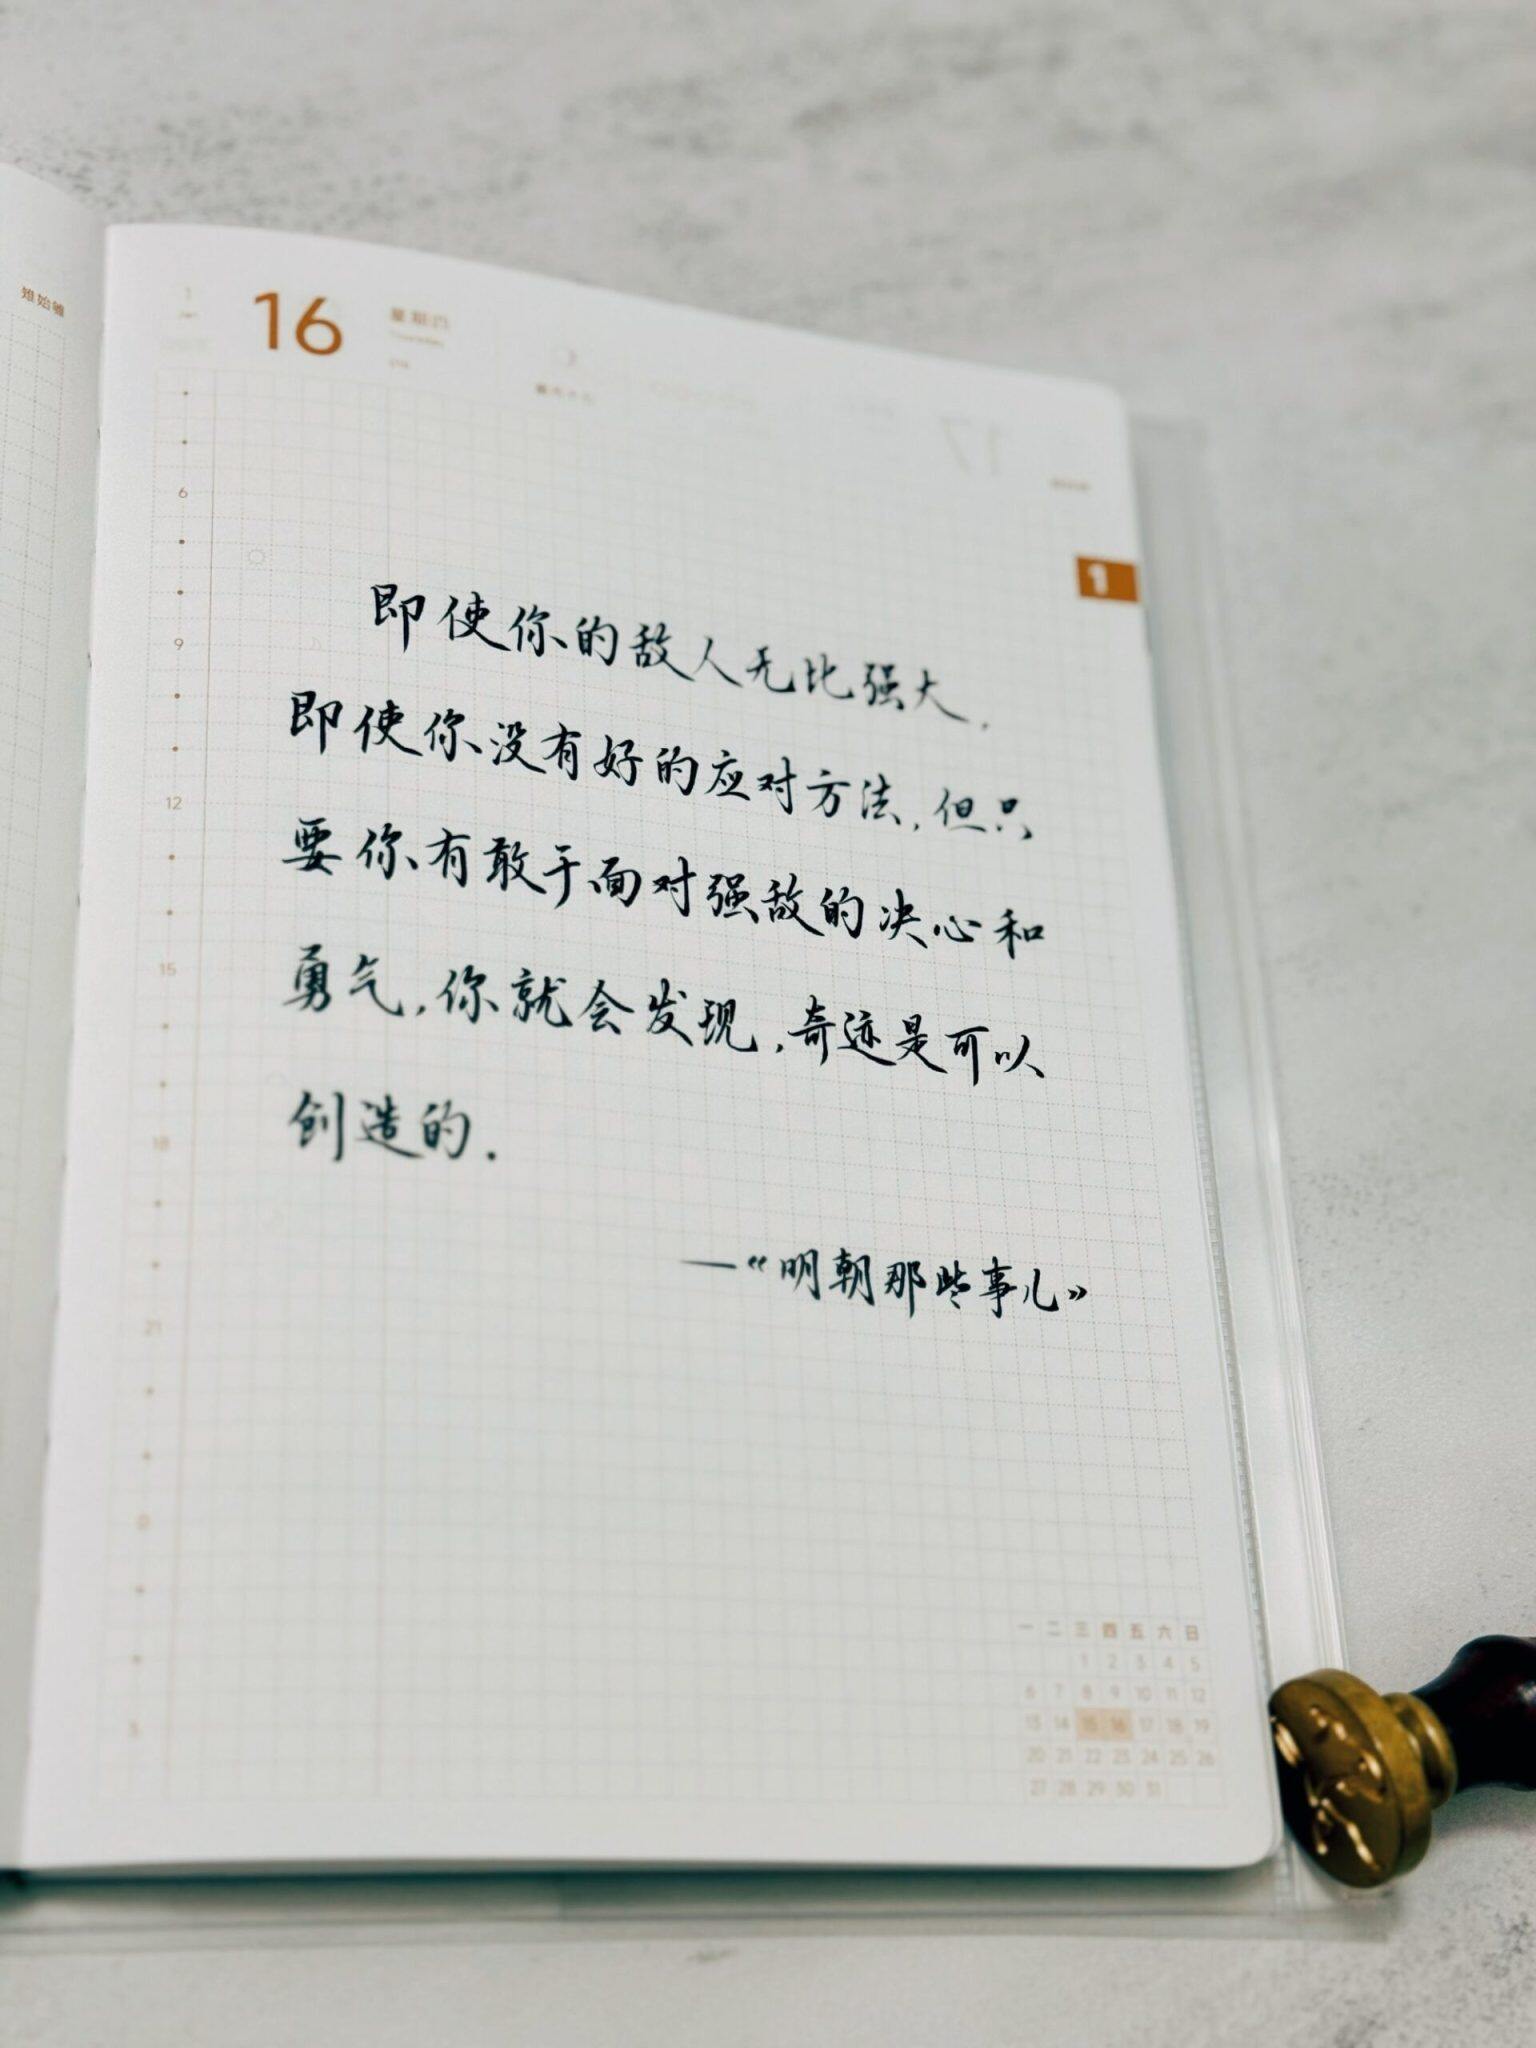 雉始雊
1
16
星期四
Thursday
17
1
6
9
12
15
18
21
0
3
即使你的敌人无比强大,
即使你没有好的应对方法,但只
要你有敢于面对强敌的决心和
勇气,你就会发现,奇迹是可以
创造的.
—《明朝那些事儿》
一 二 三 四 五 六 日
1 2 3 4 5
6 7 8 9 10 11 12
13 14 15 16 17 18 19
20 21 22 23 24 25 26
27 28 29 30 31